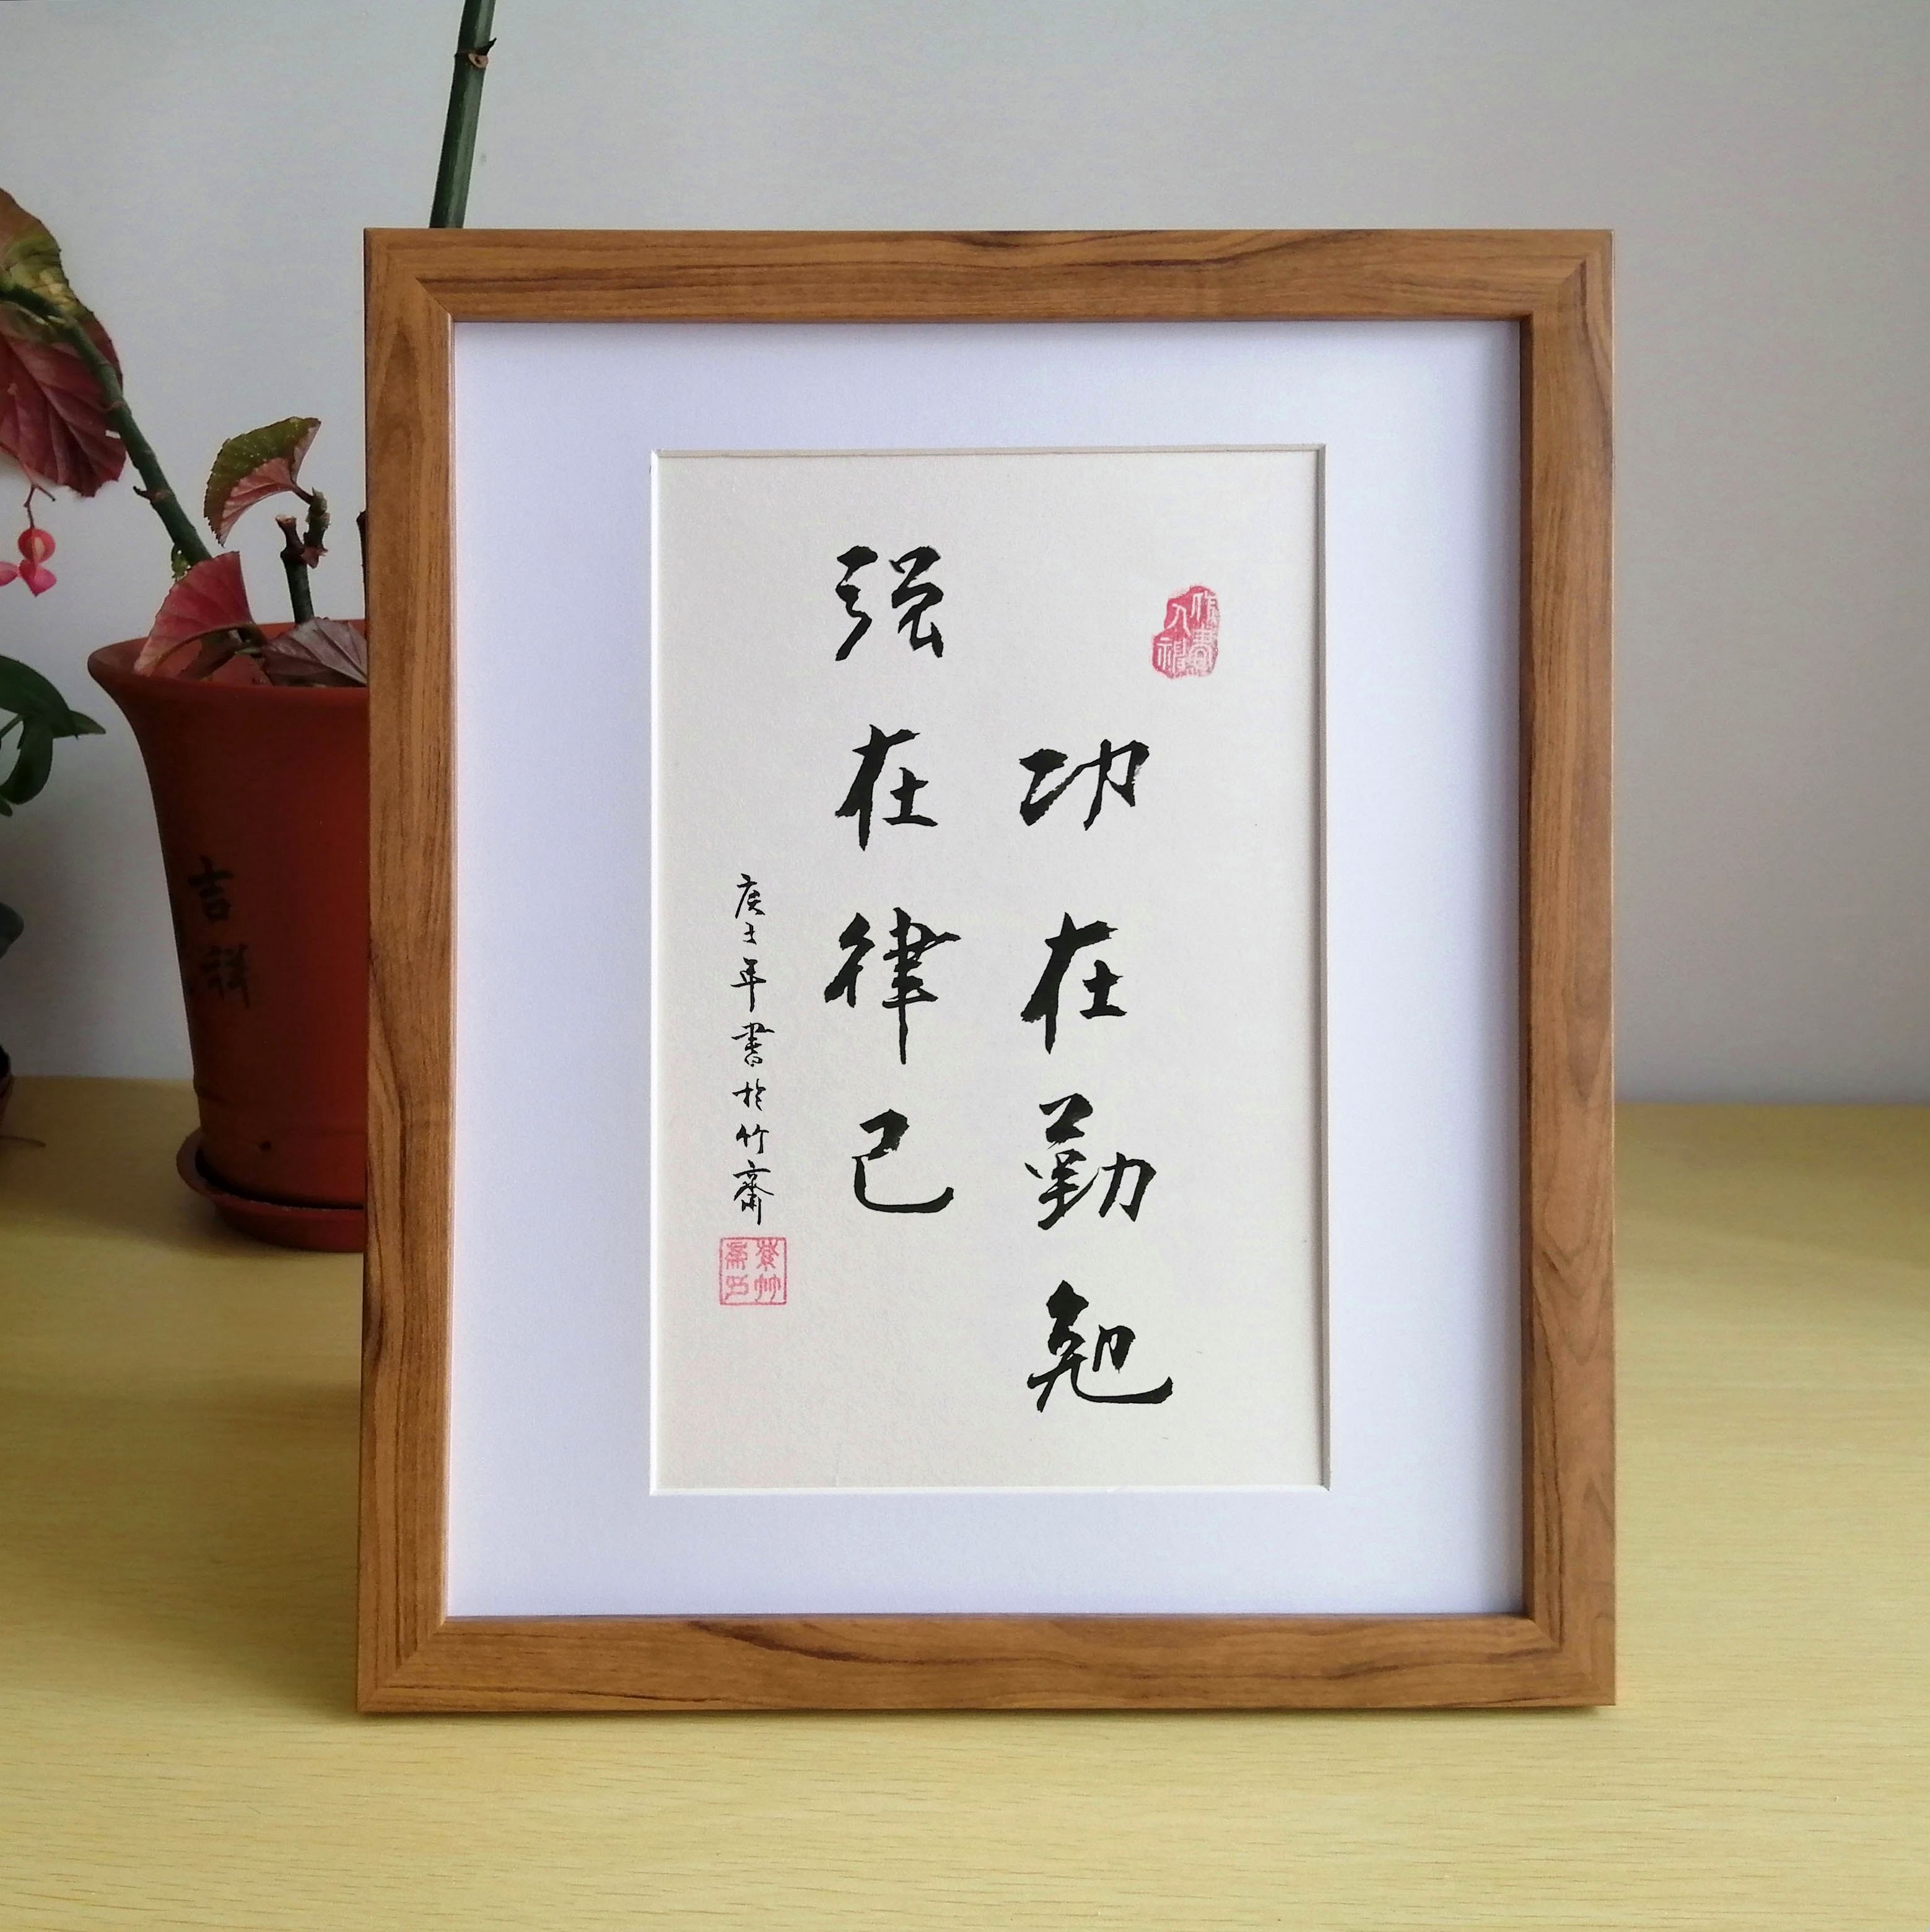 功在勤勉
强在律己
庚子年書於竹齋
紫竹齋印
吉祥